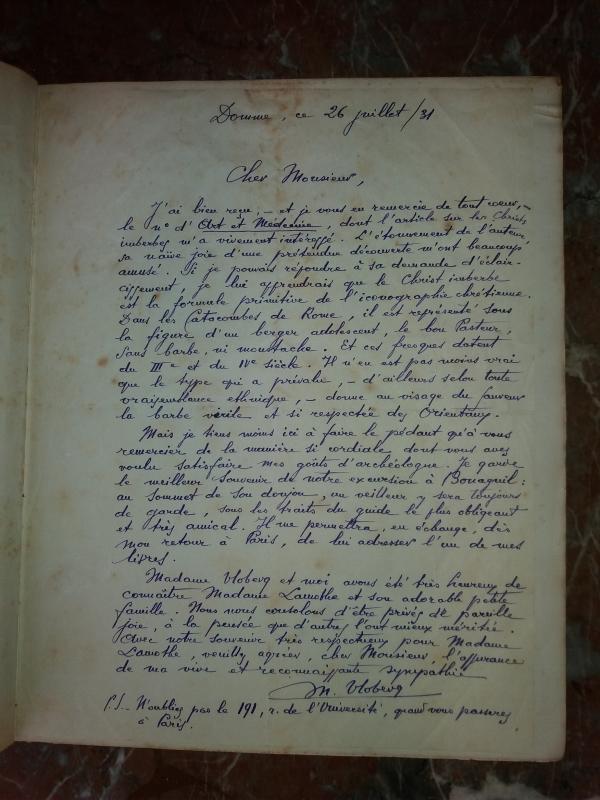 Domme, ce 26 juillet/31
Cher Monsieur,
J'ai bien reçu, – et je vous en remercie de tout cœur, –
le n° d'Art et Médecine, dont l'article sur les Christs
imberbes m'a vivement intéressé. L'étonnement de l'auteur,
sa naïve joie d'une prétendue découverte m'ont beaucoup
amusé. Si je pouvais répondre à sa demande d'éclair-
cissement, je lui apprendrais que le Christ imberbe
est la formule primitive de l'iconographie chrétienne.
Dans les Catacombes de Rome, il est représenté sous
la figure d'un berger adolescent, le bon Pasteur,
sans barbe, ni moustache. Et ces fresques datent
du IIIe et du IVe siècle. Il n'en est pas moins vrai
que le type qui a prévalu, – d'ailleurs selon toute
vraisemblance ethnique, – donne au visage du Sauveur
la barbe virile et si respectée des Orientaux.
Mais je tiens moins ici à faire le pédant qu'à vous
remercier de la manière si cordiale dont vous avez
voulu satisfaire mes goûts d'archéologue. Je garde
le meilleur souvenir de notre excursion à Bonaguil :
au sommet de son donjon, un veilleur y sera toujours
de garde, sous les traits du guide le plus obligeant
et très amical. Il me permettra, en échange, dès
mon retour à Paris, de lui adresser l'un de mes
livres.
Madame Vloberg et moi avons été très heureux de
connaître Madame Lamothe et son adorable petite
famille. Nous nous consolons d'être privés de pareille
joie, à la pensée que d'autres l'ont mieux méritée.
Avec notre souvenir très respectueux pour Madame
Lamothe, veuillez agréer, cher Monsieur, l'assurance
de ma vive et reconnaissante sympathie
M. Vloberg
P.S. – N'oubliez pas le 191, r. de l'Université, quand vous passerez
à Paris.